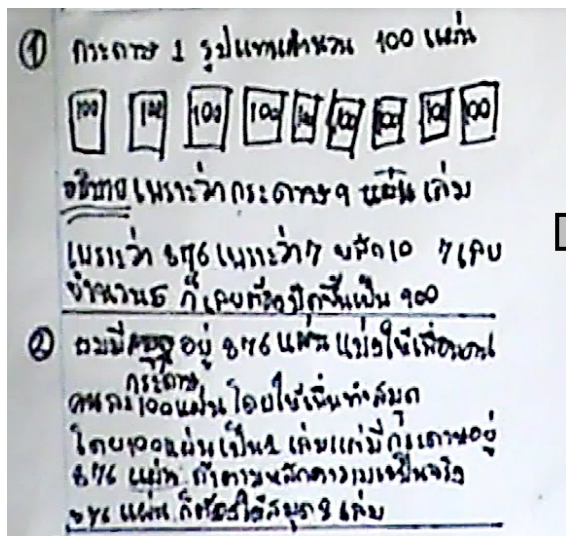 ① กระดาษ 1 รูปแทนจำนวน 100 แผ่น
100 100 100 100 100 100 100 100 100
อธิบาย เพราะว่ากระดาษ 9 เล่ม
เพราะว่า 876 เพราะว่า 7 หลัก 10 7 เลย
จำนวน 5 ก็เลยต้องปัดขึ้นเป็น 900
② ผมมีอยู่ 876 แผ่น แบ่งให้เพื่อน
กระดาษ
คนละ 100 แผ่น โดยให้เพื่อนทำสมุด
โดย 100 แผ่นเป็น 1 เล่มแต่มีกระดาษอยู่
876 แผ่น ถ้าตามหลักความเป็นจริง
876 แผ่น ก็ต้องได้สมุด 8 เล่ม